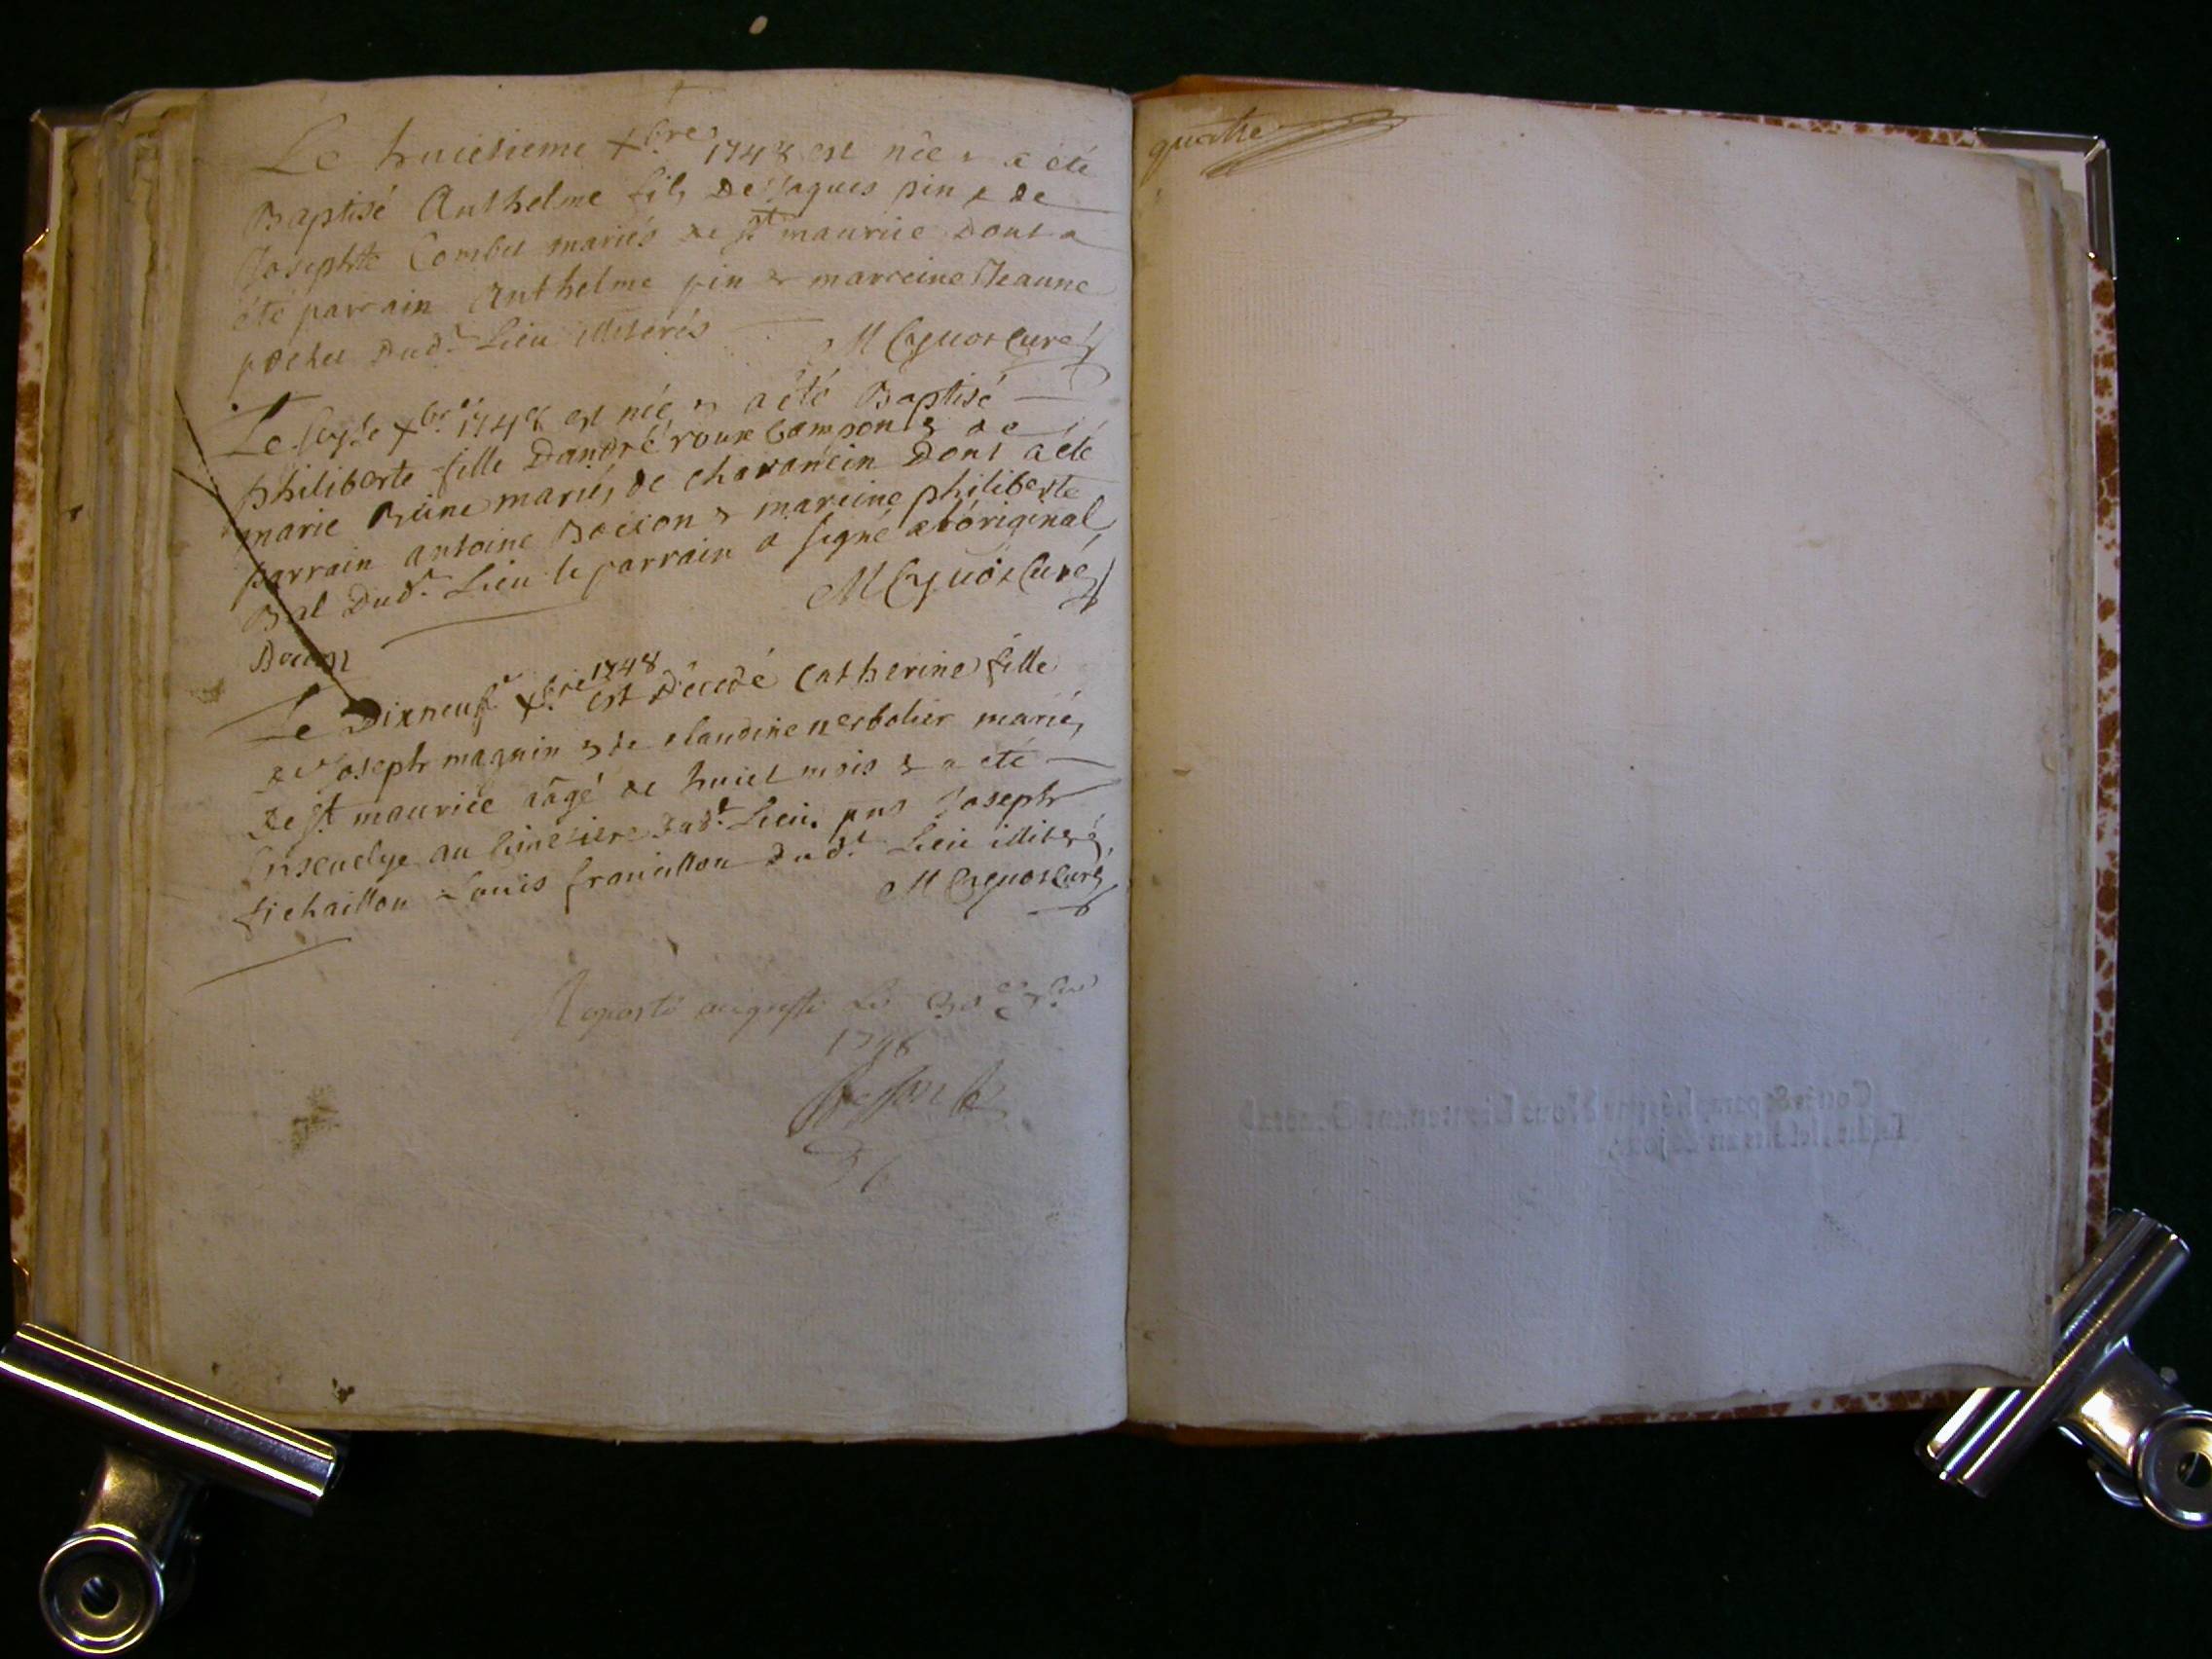 Le huictieme xbre 1748 est née & a été
Baptisé Anthelme fils De Jaques pin & de
Josephte Combet mariés de St maurice Dont a
été parrain Anthelme pin & marreine Jeanne
pochet Dudt Lieu illiterés
M Cynot Curé
Le seyze xbre 1748 est née & a été Baptisé
philiberte fille Dandré roux Compon & de
marie Reine mariés de charancin Dont a été
parrain antoine Boisson & mareine philiberte
Bal Dudt Lieu le parrain a signé a loriginal
M Cynot Curé
Le Dixneuf xbre 1748 est Décedé Catherine fille
de Joseph magnin & de claudine nerbolier mariés
De St maurice aâgé de huict mois & a été
Ensevelye au Cimetiere Dudt Lieu. pnts Joseph
fichaillon Louis francillon Dudt Lieu illiteré
M Cynot Curé
1748
quatre